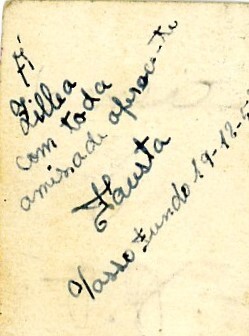 Á
Zillea
com toda
amisade oferece-te
Fausta
Passo Fundo 19-12-5